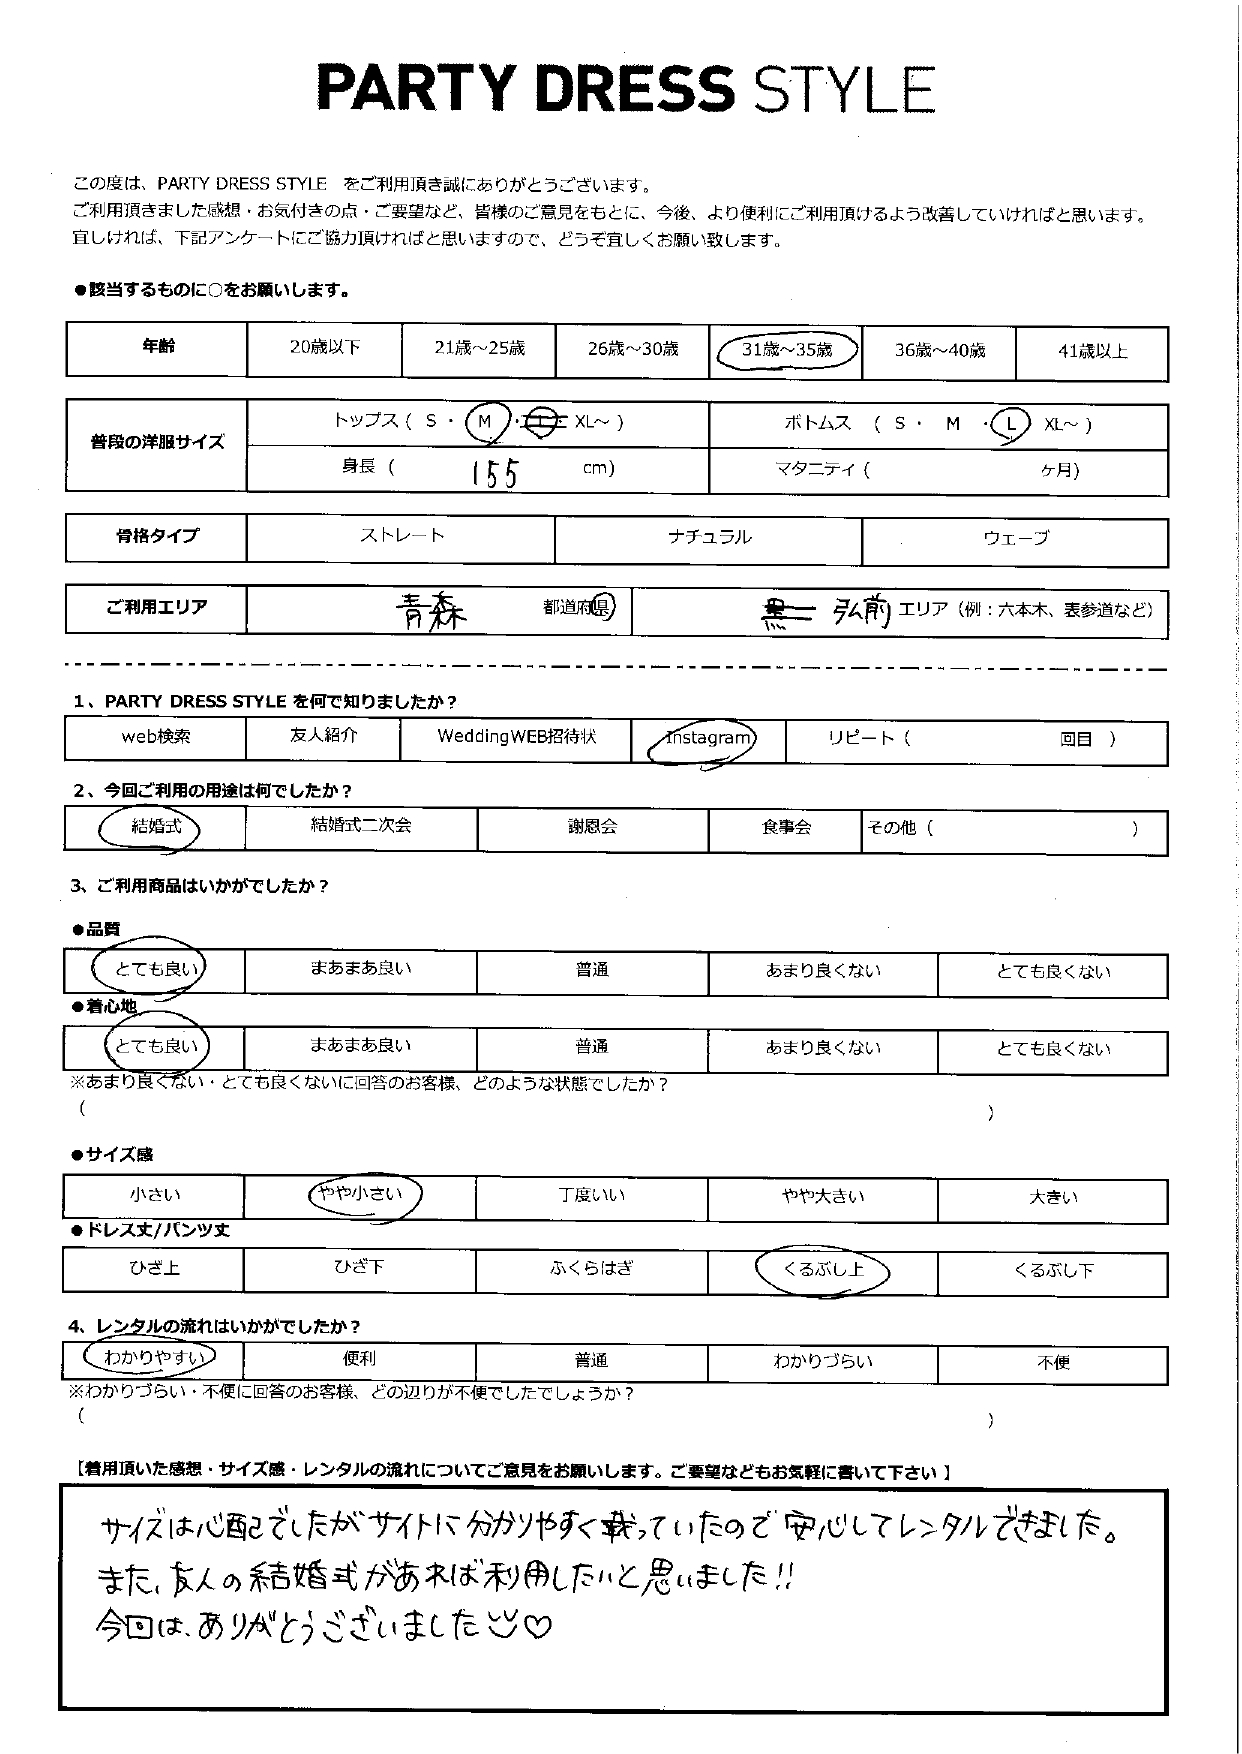 PARTY DRESS STYLE
この度は、PARTY DRESS STYLE をご利用頂き誠にありがとうございます。
ご利用頂きました感想・お気付きの点・ご要望など、皆様のご意見をもとに、今後、より便利にご利用頂けるよう改善していければと思います。
宜しければ、下記アンケートにご協力頂ければと思いますので、どうぞ宜しくお願い致します。
●該当するものに○をお願いします。
年齢 20歳以下 21歳～25歳 26歳～30歳 31歳～35歳 36歳～40歳 41歳以上
普段の洋服サイズ
トップス ( S ・ M ・ L XL～ ) ボトムス ( S ・ M ・ L XL～ )
身長 ( 155 cm) マタニティ ( ヶ月)
骨格タイプ ストレート ナチュラル ウェーブ
ご利用エリア 青森 都道府県 弘前 エリア（例：六本木、表参道など）
1、PARTY DRESS STYLE を何で知りましたか？
web検索 友人紹介 WeddingWEB招待状 Instagram リピート ( 回目 )
2、今回ご利用の用途は何でしたか？
結婚式 結婚式二次会 謝恩会 食事会 その他 ( )
3、ご利用商品はいかがでしたか？
●品質
とても良い まあまあ良い 普通 あまり良くない とても良くない
●着心地
とても良い まあまあ良い 普通 あまり良くない とても良くない
※あまり良くない・とても良くないに回答のお客様、どのような状態でしたか？
( )
●サイズ感
小さい やや小さい 丁度いい やや大きい 大きい
●ドレス丈/パンツ丈
ひざ上 ひざ下 ふくらはぎ くるぶし上 くるぶし下
4、レンタルの流れはいかがでしたか？
わかりやすい 便利 普通 わかりづらい 不便
※わかりづらい・不便に回答のお客様、どの辺りが不便でしたでしょうか？
( )
【着用頂いた感想・サイズ感・レンタルの流れについてご意見をお願いします。ご要望などもお気軽に書いて下さい】
サイズは心配でしたがサイトに分かりやすく載っていたので安心してレンタルできました。
また、友人の結婚式があれば利用したいと思いました!!
今回は、ありがとうございました♡